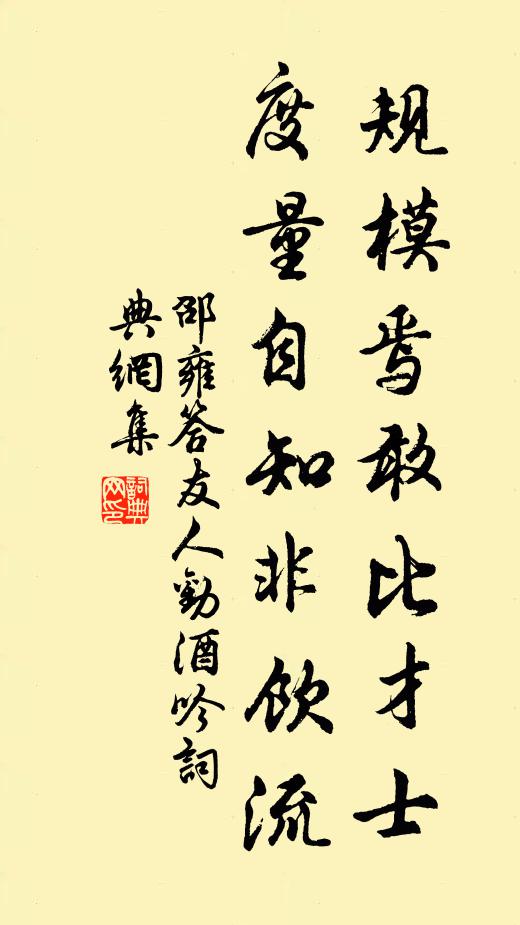 規模焉敢比才士
度量自知非飲流
邵雍答友人勸酒吟詞
典網集
詞典網印